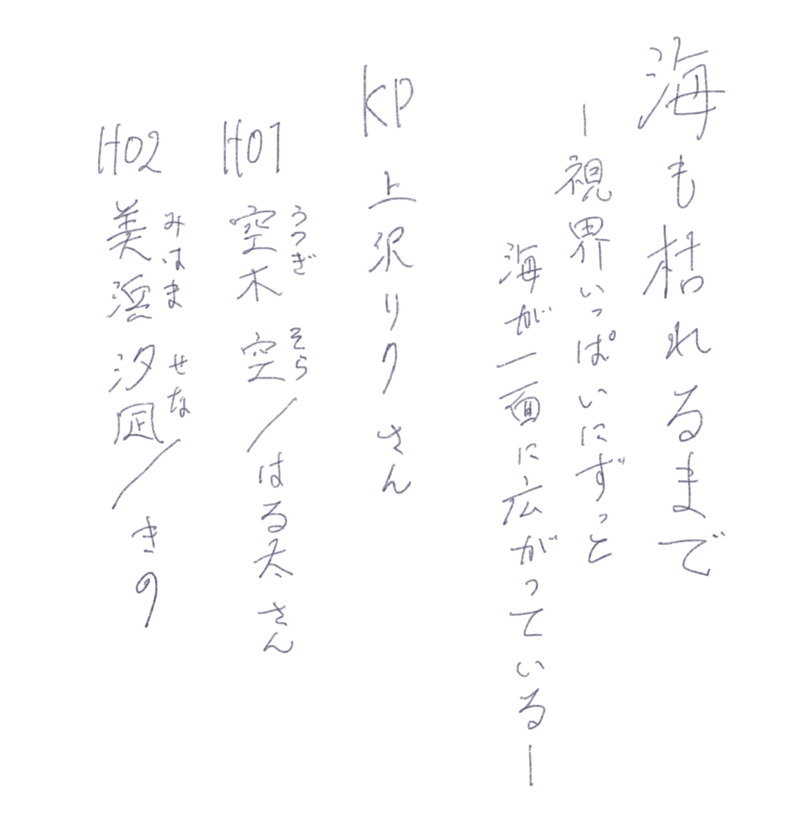 海も枯れるまで
ー視界いっぱいにずっと
海が一面に広がっているー
KP 上沢リクさん
HO1 空木 空/はる太さん
うつぎ そら
HO2 美浜 汐凪/きの
みはま せな